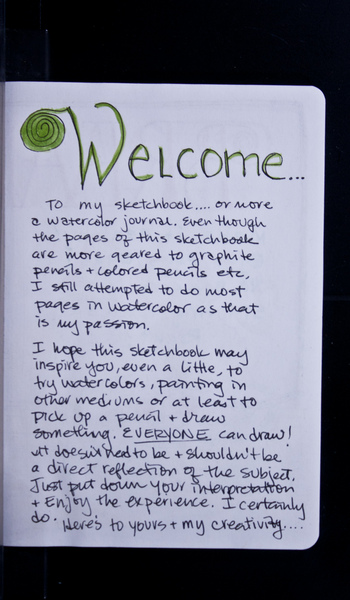 Welcome...
To my sketchbook.... or more
a watercolor journal. Even though
the pages of this sketchbook
are more geared to graphite
pencils + colored pencils etc,
I still attempted to do most
pages in watercolor as that
is my passion.
I hope this sketchbook may
inspire you, even a little, to
try watercolors, painting in
other mediums or at least to
pick up a pencil + draw
something. EVERYONE can draw!
It doesn't need to be + shouldn't be
a direct reflection of the subject.
Just put down your interpretation
+ Enjoy the experience. I certainly
do. Here's to yours + my creativity....